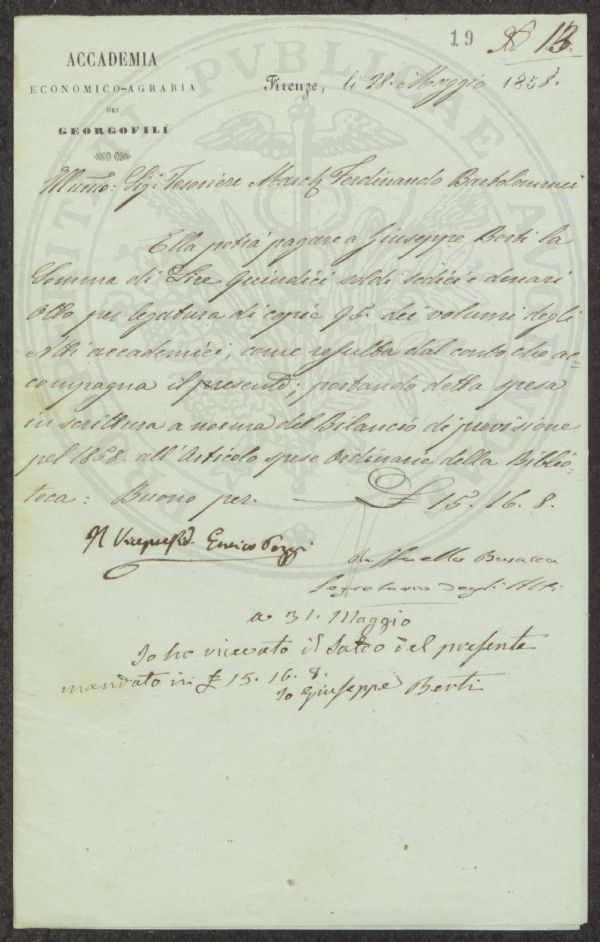 19 N 13.
ACCADEMIA
ECONOMICO-AGRARIA
DEI
GEORGOFILI
Firenze, li 28. Maggio 1858.
Sig. Tesoriere March. Ferdinando Bartolommei
Ella potrà pagare a Giuseppe Berti la
Somma di Lire Quindici soldi sedici e denari
Otto per legatura di copie 95. dei volumi degli
Atti accademici, come resulta dal conto che ac=
compagna il presente; portando detta spesa
in scrittura a norma del Bilancio di previsione
pel 1858. all'Articolo spese Ordinarie della Biblio=
teca: Buono per. — £ 15. 16. 8.
Il Vicepresid. Enrico Poggi
Raffaello Busacca
Segretario degli Atti
a 31. Maggio
Io ho ricevuto il Saldo del presente
mandato in £ 15. 16. 8.
Io Giuseppe Berti